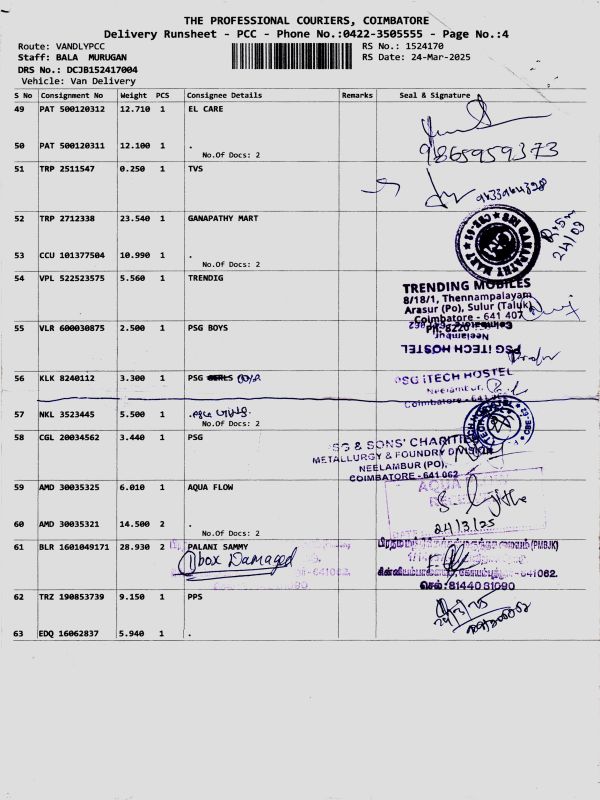 THE PROFESSIONAL COURIERS, COIMBATORE
Delivery Runsheet - PCC - Phone No.:0422-3505555 - Page No.:4
Route: VANDLYPCC RS No.: 1524170
Staff: BALA MURUGAN RS Date: 24-Mar-2025
DRS No.: DCJB152417004
Vehicle: Van Delivery
S No Consignment No Weight PCS Consignee Details Remarks Seal & Signature
49 PAT 500120312 12.710 1 EL CARE
50 PAT 500120311 12.100 1 .
9865959373
No.Of Docs: 2
51 TRP 2511547 0.250 1 TVS
52 TRP 2712338 23.540 1 GANAPATHY MART
24/03
53 CCU 101377504 10.990 1 .
No.Of Docs: 2
54 VPL 522523575 5.560 1 TRENDIG
TRENDING MOBILES
8/18/1, Thennampalayam
Arasur (Po), Sulur (Taluk)
Coimbatore - 641 407
55 VLR 600030875 2.500 1 PSG BOYS
PSG iTECH HOSTEL
56 KLK 8240112 3.300 1 PSG GIRLS
PSG iTECH HOSTEL
57 NKL 3523445 5.500 1 .
No.Of Docs: 2
58 CGL 20034562 3.440 1 PSG
SG & SONS' CHARITIE
METALLURGY & FOUNDRY DIVISION
NEELAMBUR (PO),
COIMBATORE - 641 062
59 AMD 30035325 6.010 1 AQUA FLOW
AQUA
60 AMD 30035321 14.500 2 .
24/3/25
No.Of Docs: 2
61 BLR 1601049171 28.930 2 PALANI SAMMY
(PMBJK)
1 box Damaged
641062.
செல்:81440 81090
62 TRZ 190853739 9.150 1 PPS
63 EDQ 16062837 5.940 1 .